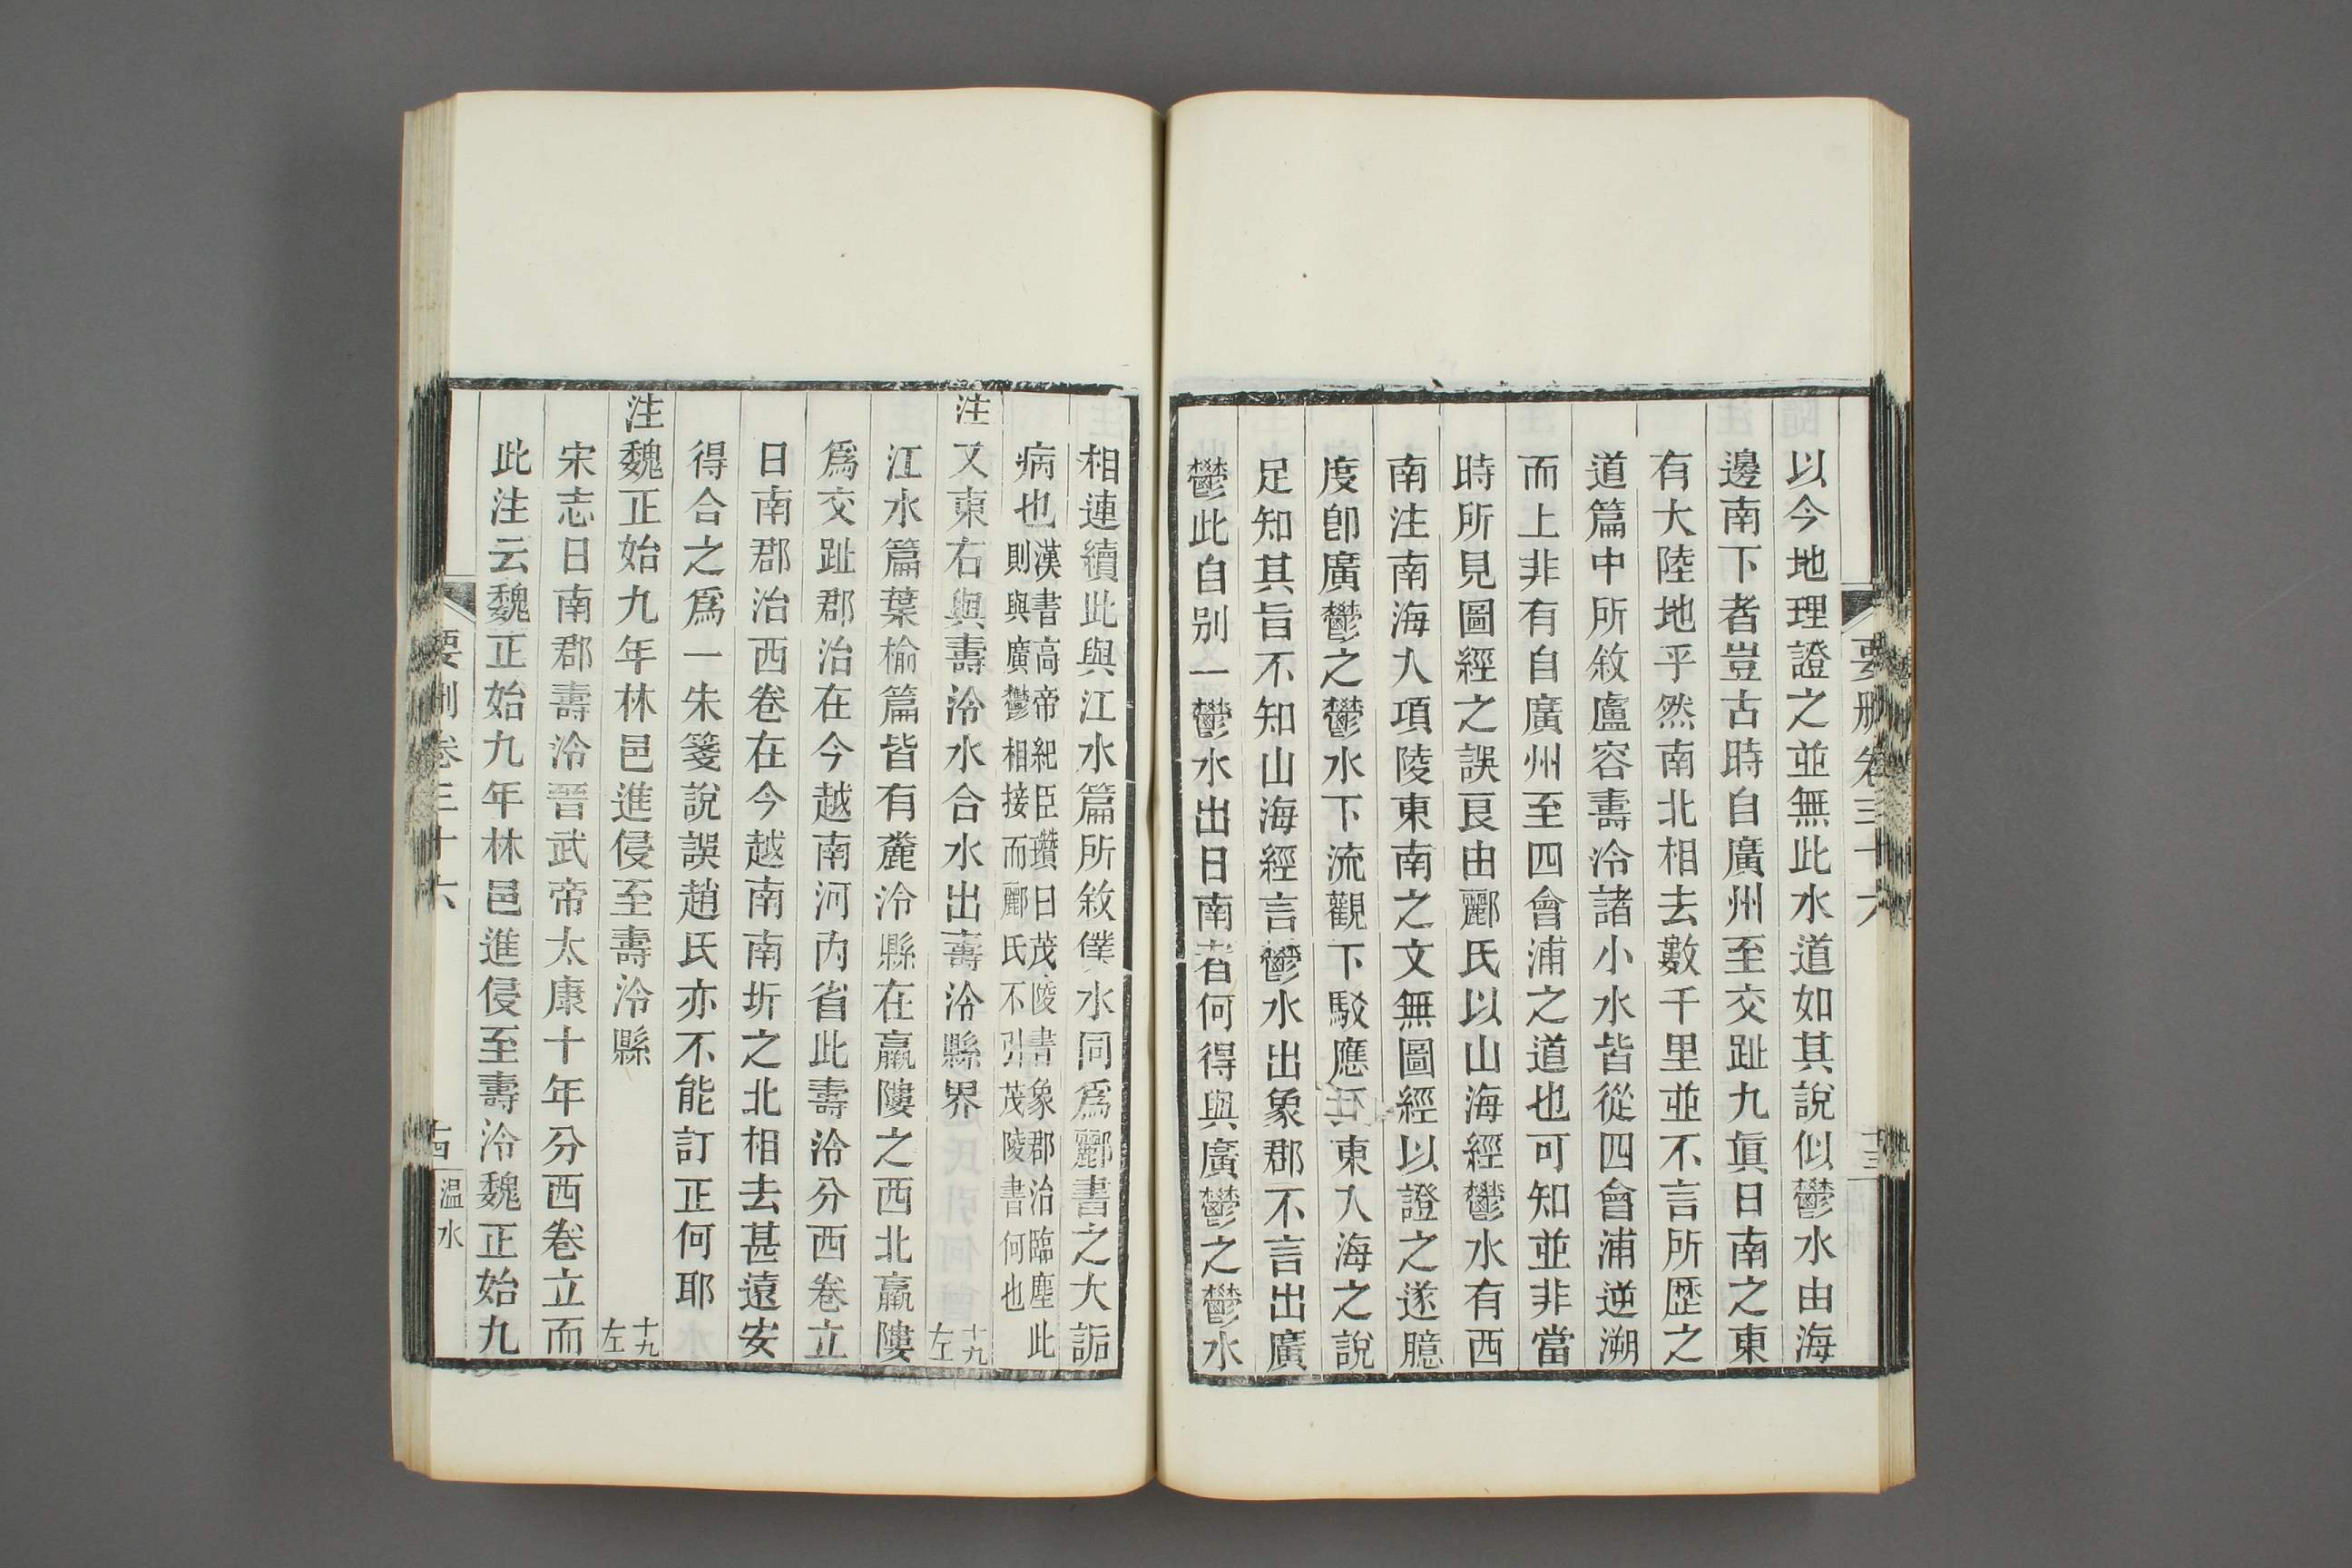 要刪卷三十六
十三
以今地理證之並無此水道如其說似鬱水由海
邊南下者豈古時自廣州至交趾九眞日南之東
有大陸地乎然南北相去數千里並不言所歷之
道篇中所敘盧容壽泠諸小水皆從四會浦逆溯
而上非有自廣州至四會浦之道也可知並非當
時所見圖經之誤艮由酈氏以山海經鬱水有西
南注南海入項陵東南之文無圖經以證之遂臆
度卽廣鬱之鬱水下流觀下駁應劭東入海之說
足知其旨不知山海經言鬱水出象郡不言出廣
鬱此自别一鬱水出日南者何得與廣鬱之鬱水
相連續此與江水篇所敘僕水同爲酈書之大詬
病也漢書高帝紀臣瓚曰茂陵書象郡治臨塵此
則與廣鬱相接而酈氏不引茂陵書何也
注又東右與壽泠水合水出壽泠縣界十九左
江水篇葉榆篇皆有麊泠縣在羸𨻻之西北羸𨻻
爲交趾郡治在今越南河內省此壽泠分西卷立
日南郡治西卷在今越南南圻之北相去甚遠安
得合之爲一朱箋說誤趙氏亦不能訂正何耶
注魏正始九年林邑進侵至壽泠縣十九左
宋志日南郡壽泠晉武帝太康十年分西卷立而
此注云魏正始九年林邑進侵至壽泠魏正始九
要刪卷三十六
古
温水